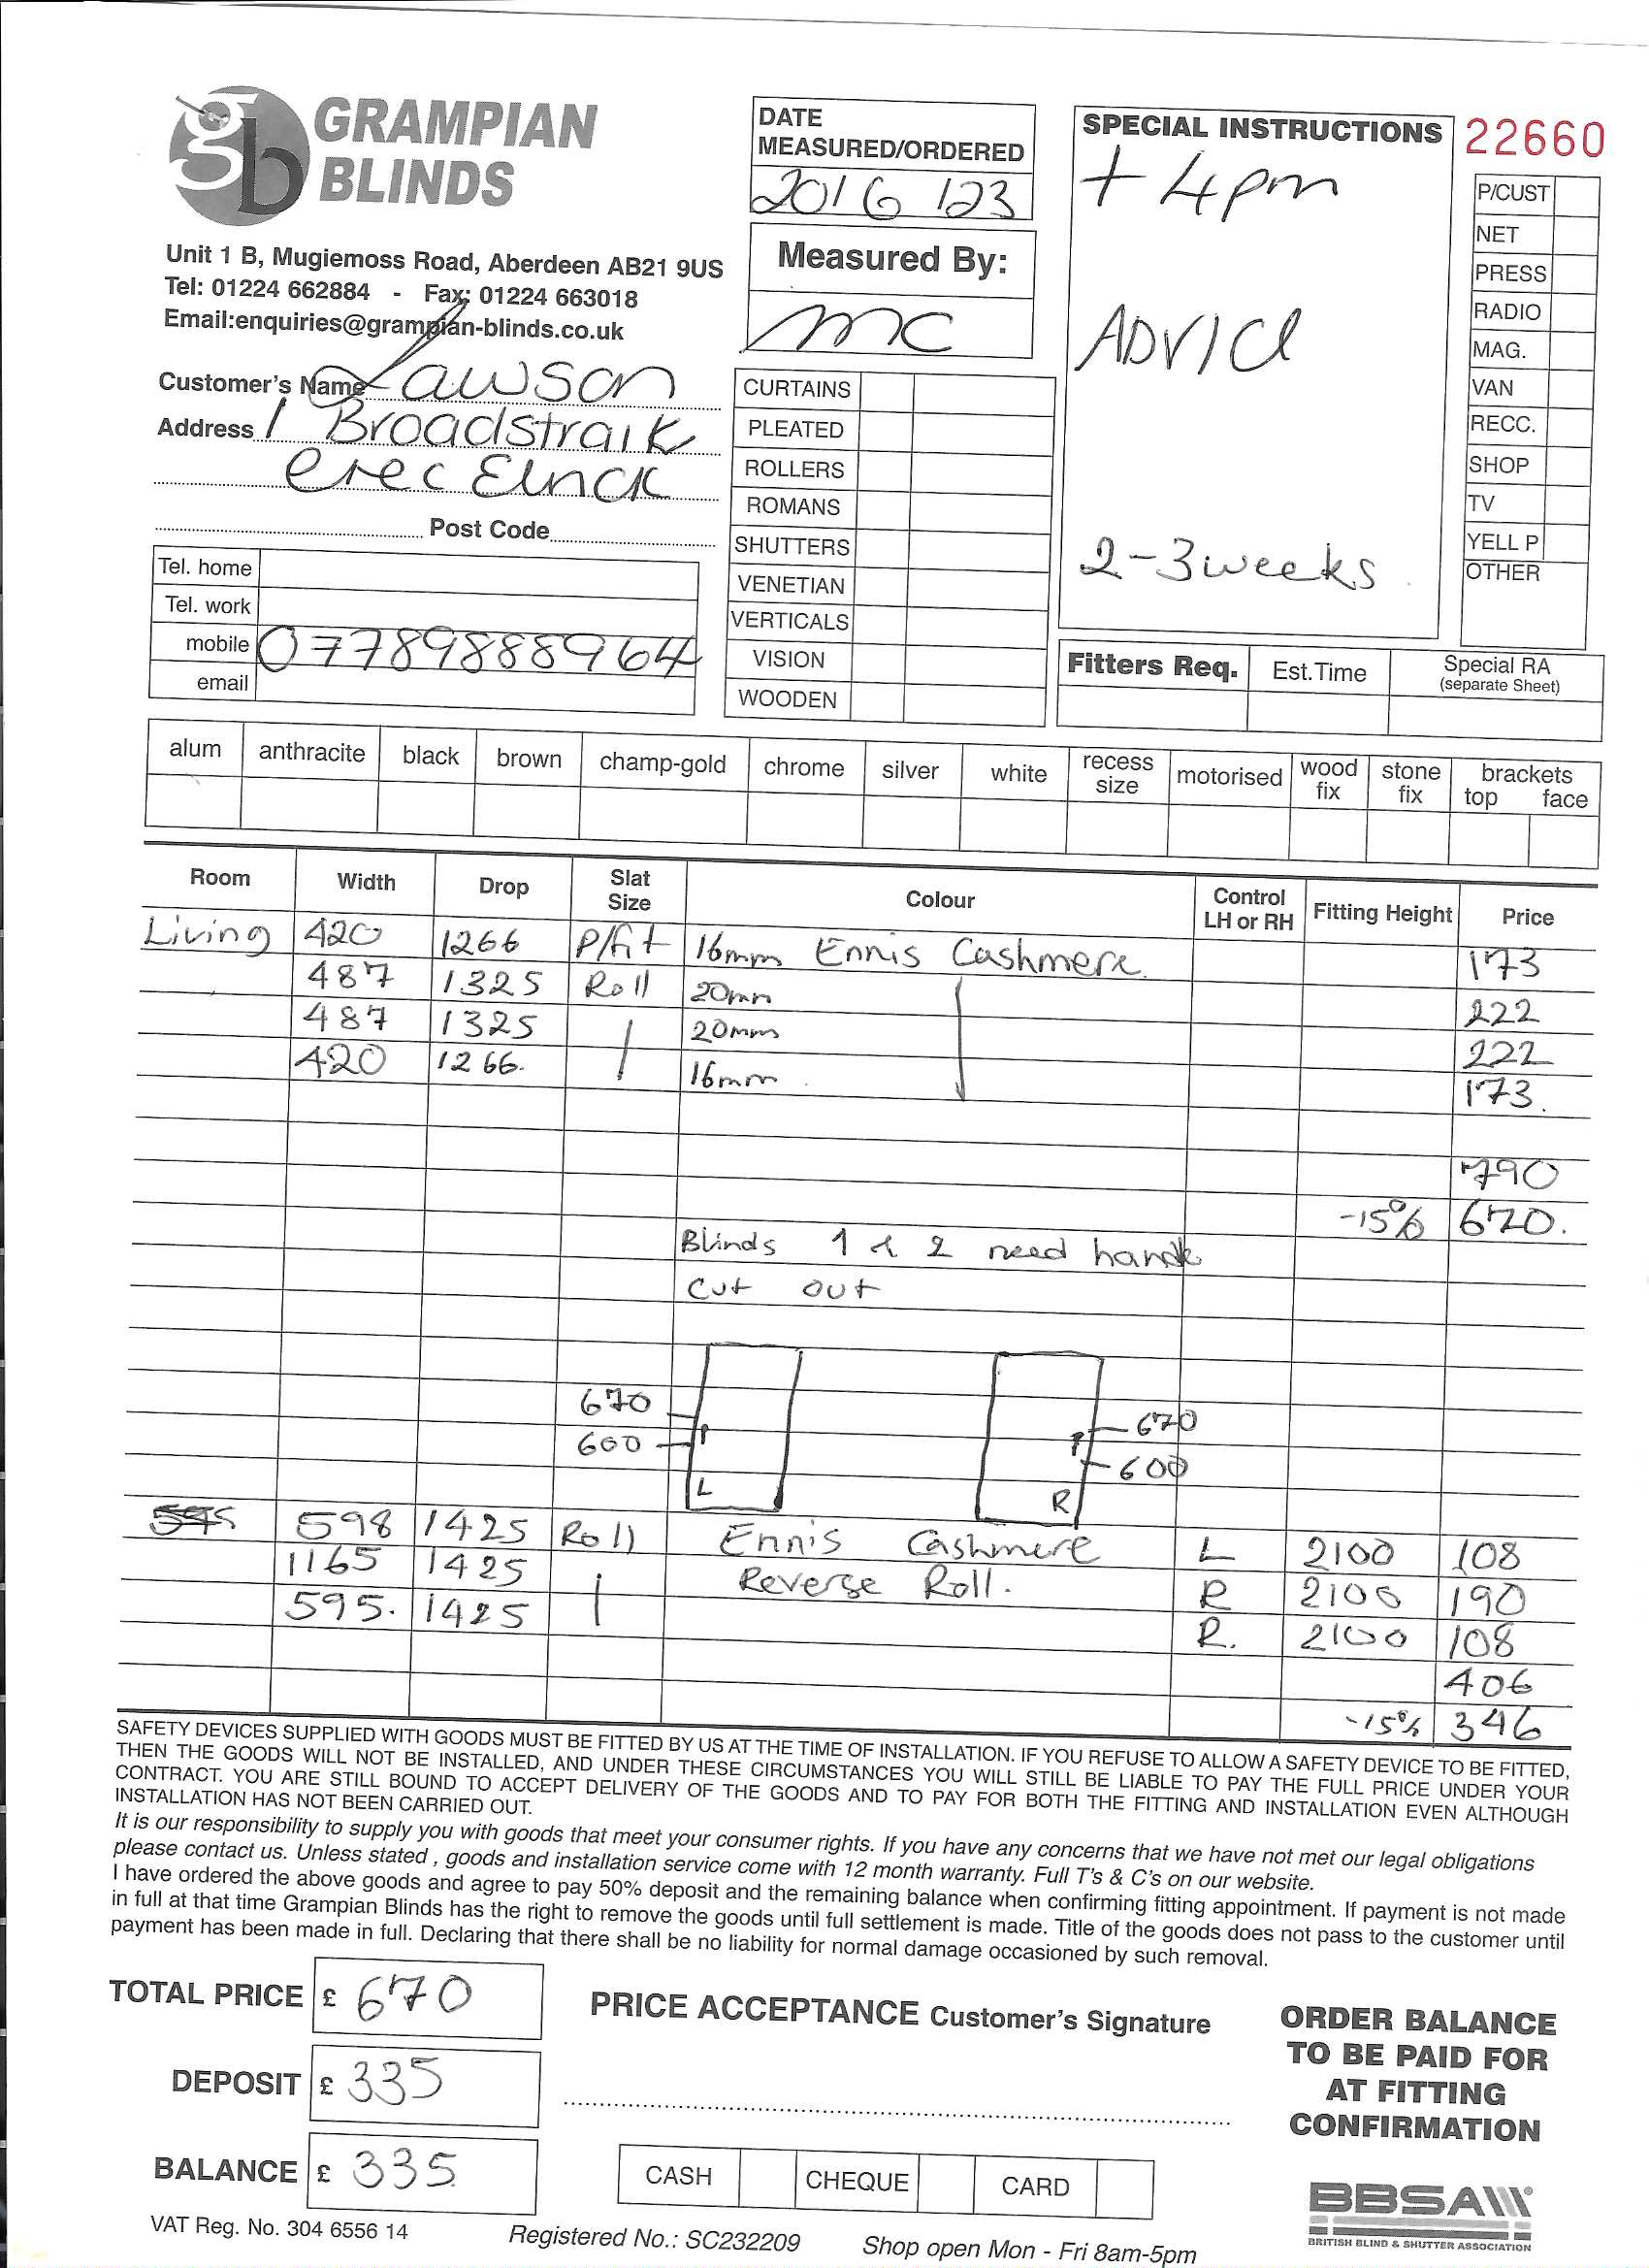 GRAMPIAN
BLINDS
Unit 1 B, Mugiemoss Road, Aberdeen AB21 9US
Tel: 01224 662884 - Fax: 01224 663018
Email:enquiries@grampian-blinds.co.uk
Customer's Name Lawson
Address 1 Broadstraik
Post Code
Tel. home
Tel. work
mobile 07789888964
email
DATE
MEASURED/ORDERED
Measured By:
mc
CURTAINS
PLEATED
ROLLERS
ROMANS
SHUTTERS
VENETIAN
VERTICALS
VISION
WOODEN
SPECIAL INSTRUCTIONS
+ 4pm
2-3 weeks
22660
P/CUST
NET
PRESS
RADIO
MAG.
VAN
RECC.
SHOP
TV
YELL P
OTHER
Fitters Req. Est.Time Special RA
(separate Sheet)
alum anthracite black brown champ-gold chrome silver white recess size motorised wood fix stone fix brackets top face
Room Width Drop Slat Size Colour Control LH or RH Fitting Height Price
Living 420 1266 P/fit 16mm Ennis Cashmere 173
487 1325 Roll 20mm 222
487 1325 20mm 222
420 1266. 16mm 173.
790
-15% 670.
Blinds 1 & 2 need handle
cut out
670 670
600 600
L R
598 1425 Roll Ennis Cashmere L 2100 108
1165 1425 Reverse Roll. R 2100 190
595. 1425 R. 2100 108
406
-15% 346
SAFETY DEVICES SUPPLIED WITH GOODS MUST BE FITTED BY US AT THE TIME OF INSTALLATION. IF YOU REFUSE TO ALLOW A SAFETY DEVICE TO BE FITTED,
THEN THE GOODS WILL NOT BE INSTALLED, AND UNDER THESE CIRCUMSTANCES YOU WILL STILL BE LIABLE TO PAY THE FULL PRICE UNDER YOUR
CONTRACT. YOU ARE STILL BOUND TO ACCEPT DELIVERY OF THE GOODS AND TO PAY FOR BOTH THE FITTING AND INSTALLATION EVEN ALTHOUGH
INSTALLATION HAS NOT BEEN CARRIED OUT.
It is our responsibility to supply you with goods that meet your consumer rights. If you have any concerns that we have not met our legal obligations
please contact us. Unless stated , goods and installation service come with 12 month warranty. Full T's & C's on our website.
I have ordered the above goods and agree to pay 50% deposit and the remaining balance when confirming fitting appointment. If payment is not made
in full at that time Grampian Blinds has the right to remove the goods until full settlement is made. Title of the goods does not pass to the customer until
payment has been made in full. Declaring that there shall be no liability for normal damage occasioned by such removal.
TOTAL PRICE £ 670
DEPOSIT £ 335
BALANCE £ 335
PRICE ACCEPTANCE Customer's Signature
CASH CHEQUE CARD
ORDER BALANCE
TO BE PAID FOR
AT FITTING
CONFIRMATION
BBSA
BRITISH BLIND & SHUTTER ASSOCIATION
VAT Reg. No. 304 6556 14 Registered No.: SC232209 Shop open Mon - Fri 8am-5pm